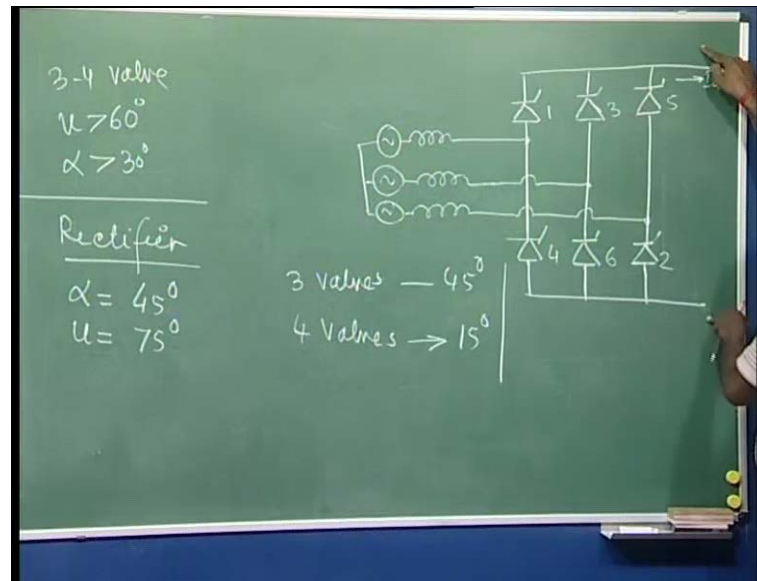 3-4 valve
u > 60°
α > 30°
Rectifier
α = 45°
u = 75°
3 valves — 45°
4 valves → 15°
1 3 5
4 6 2